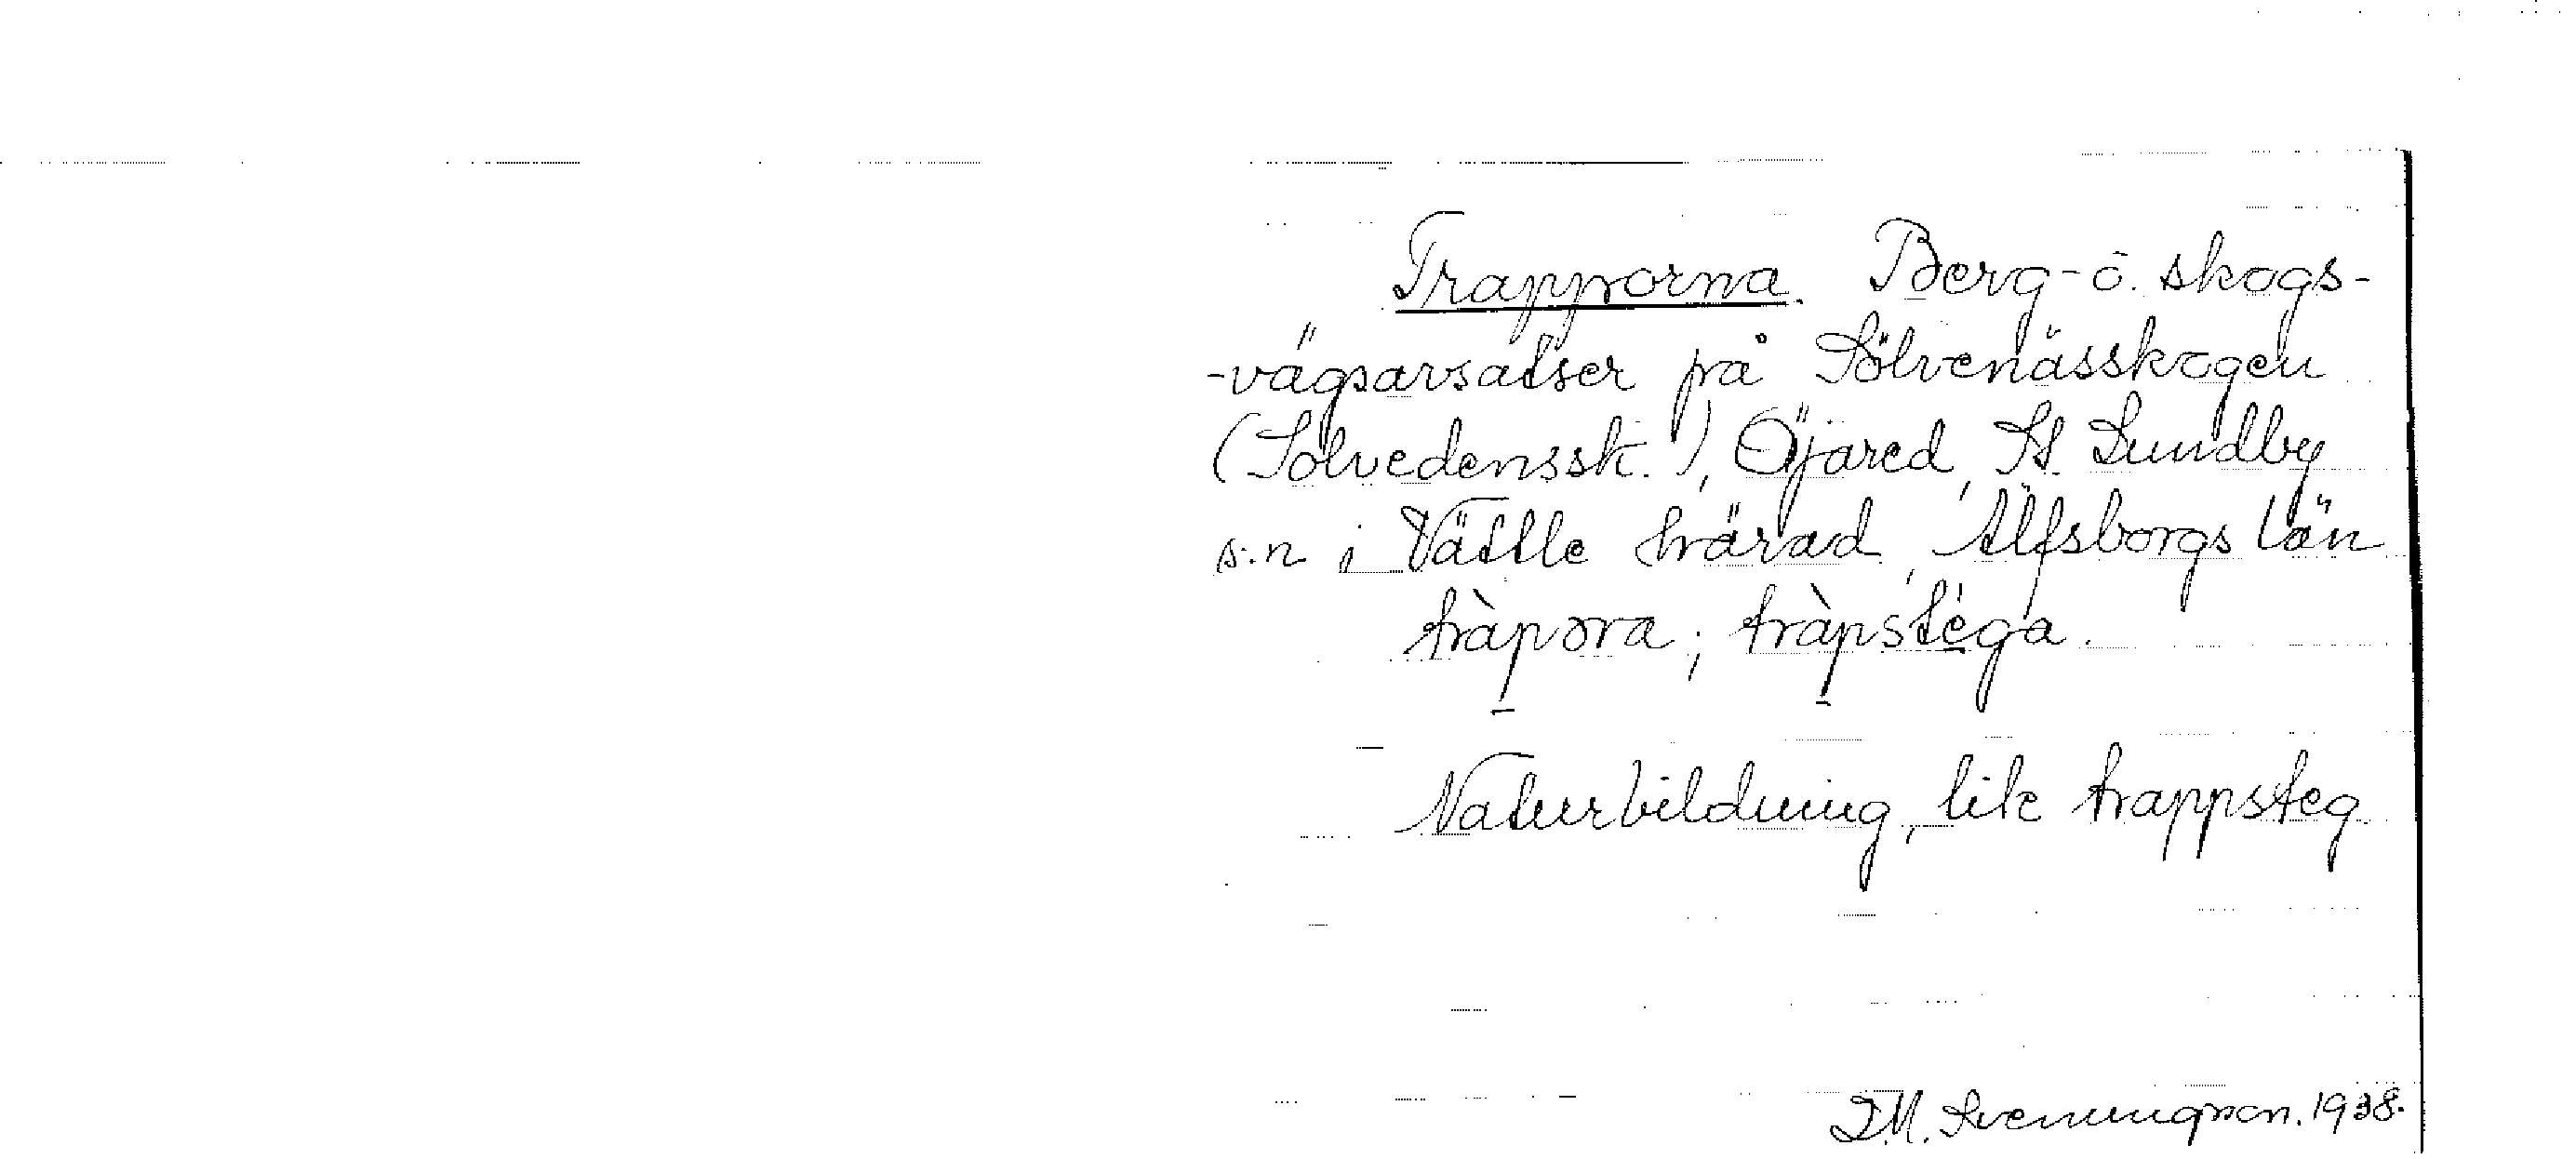 Trapporna. Berg- o. skogs-
-vägsavsatser på Sölvenässkogen
(Solvedenssk.), Öjared, St. Lundby
s:n i Vättle härad, Älfsborgs län
tràpora; tràpstéga.
Naturbildning, lik trappsteg
I.M. Svenningson. 1938.